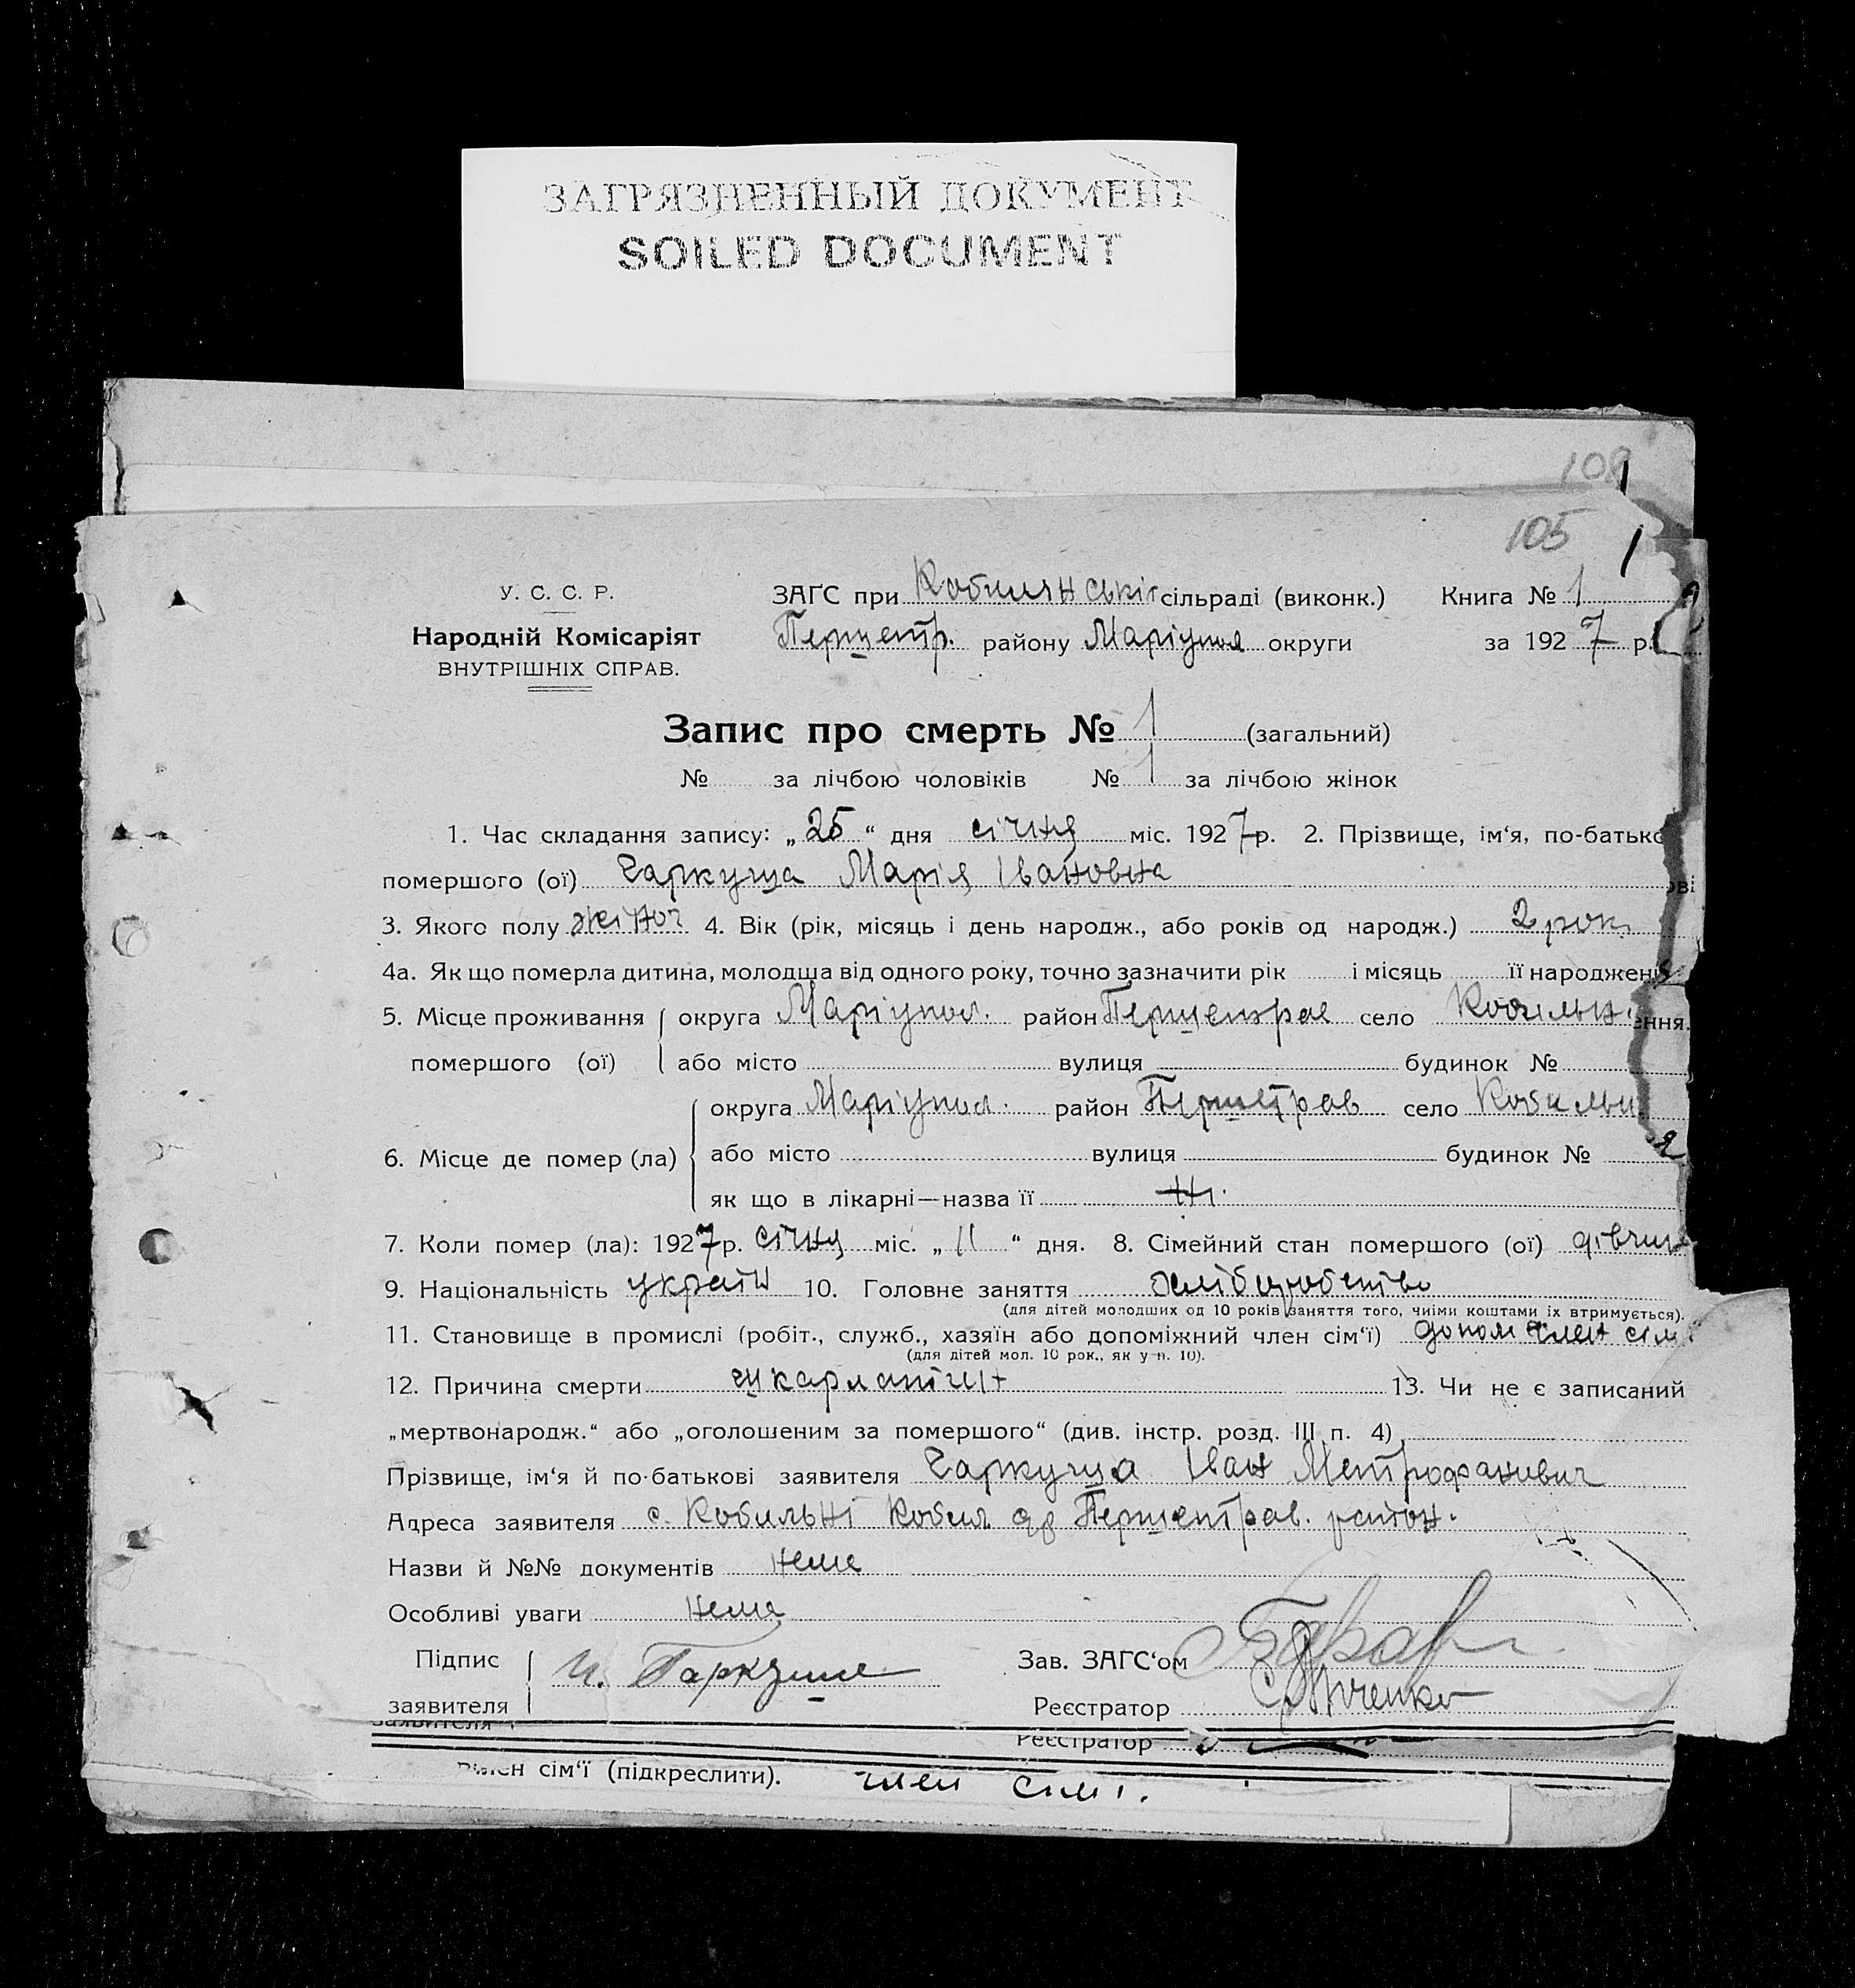 ЗАГРЯЗНЕННЫЙ ДОКУМЕНТ
SOILED DOCUMENT
108
105
У. С. С. Р.
Народній Комісаріят
ВНУТРІШНІХ СПРАВ.
ЗАГС при Кобилянській сільраді (виконк.) Книга № 1
району Маріупол округи за 1927 р.
Запис про смерть № 1 (загальний)
№ за лічбою чоловіків № 1 за лічбою жінок
1. Час складання запису: „25“ дня січня міс. 1927 р. 2. Прізвище, ім‘я, по-батько
помершого (ої) Гаркуша Марія Івановна
3. Якого полу жіноч 4. Вік (рік, місяць і день народж., або років од народж.) 2 рок
4а. Як що померла дитина, молодша від одного року, точно зазначити рік і місяць її народжен
5. Місце проживання округа Маріупол. район село Кобильні
помершого (ої) або місто вулиця будинок №
округа Маріупол. район село Кобильн
6. Місце де помер (ла) або місто вулиця будинок №
як що в лікарні—назва її
7. Коли помер (ла): 1927 р. січня міс. „11“ дня. 8. Сімейний стан помершого (ої) дівчин
9. Національність україн 10. Головне заняття хліборобство
(для дітей молодших од 10 років заняття того, чиїми коштами їх втримується).
11. Становище в промислі (робіт., служб., хазяїн або допоміжний член сім‘ї) допом член сім
(для дітей мол. 10 рок., як у п. 10).
12. Причина смерти шкарлатин 13. Чи не є записаний
„мертвонародж.“ або „оголошеним за помершого“ (див. інстр. розд. III п. 4)
Прізвище, ім‘я й по-батькові заявителя Гаркуша Іван Метрофанович
Адреса заявителя с. Кобильні район.
Назви й №№ документів нема
Особливі уваги нема
Підпис И. Гаркуша Зав. ЗАГС‘ом
заявителя Реєстратор
заявителя
Реєстратор
член сім‘ї (підкреслити). член сімі.